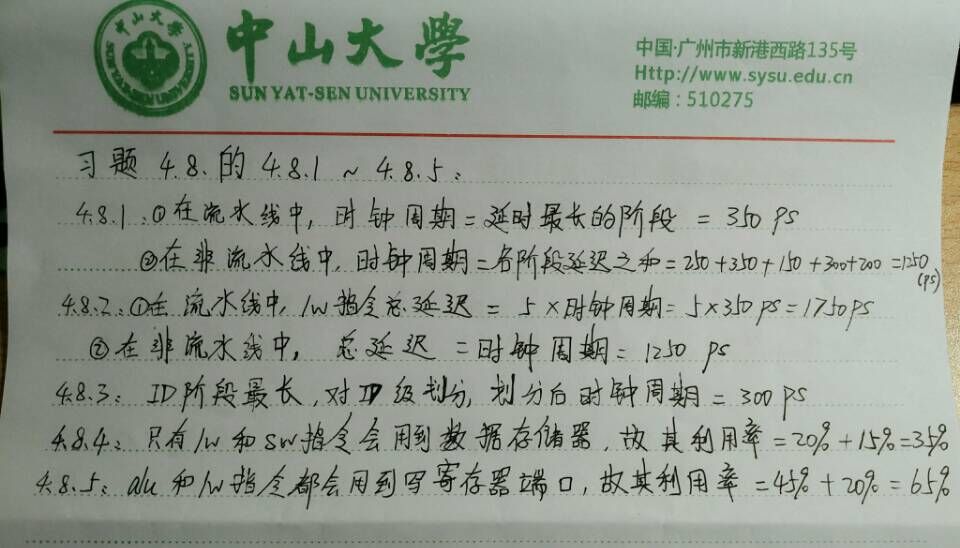 中山大學
SUN YAT-SEN UNIVERSITY
中山大學
SUN YAT-SEN UNIVERSITY
中国·广州市新港西路135号
Http://www.sysu.edu.cn
邮编：510275
习题 4.8.的 4.8.1 ~ 4.8.5：
4.8.1：①在流水线中，时钟周期=延时最长的阶段 = 350 ps
②在非流水线中，时钟周期=各阶段延迟之和=250+350+150+300+200=1250 (ps)
4.8.2：①在流水线中，lw指令总延迟 = 5×时钟周期=5×350ps=1750ps
②在非流水线中，总延迟=时钟周期=1250 ps
4.8.3：ID阶段最长，对ID级划分，划分后时钟周期=300ps
4.8.4：只有lw和sw指令会用到数据存储器，故其利用率=20%+15%=35%
4.8.5：alu和lw指令都会用到写寄存器端口，故其利用率=45%+20%=65%